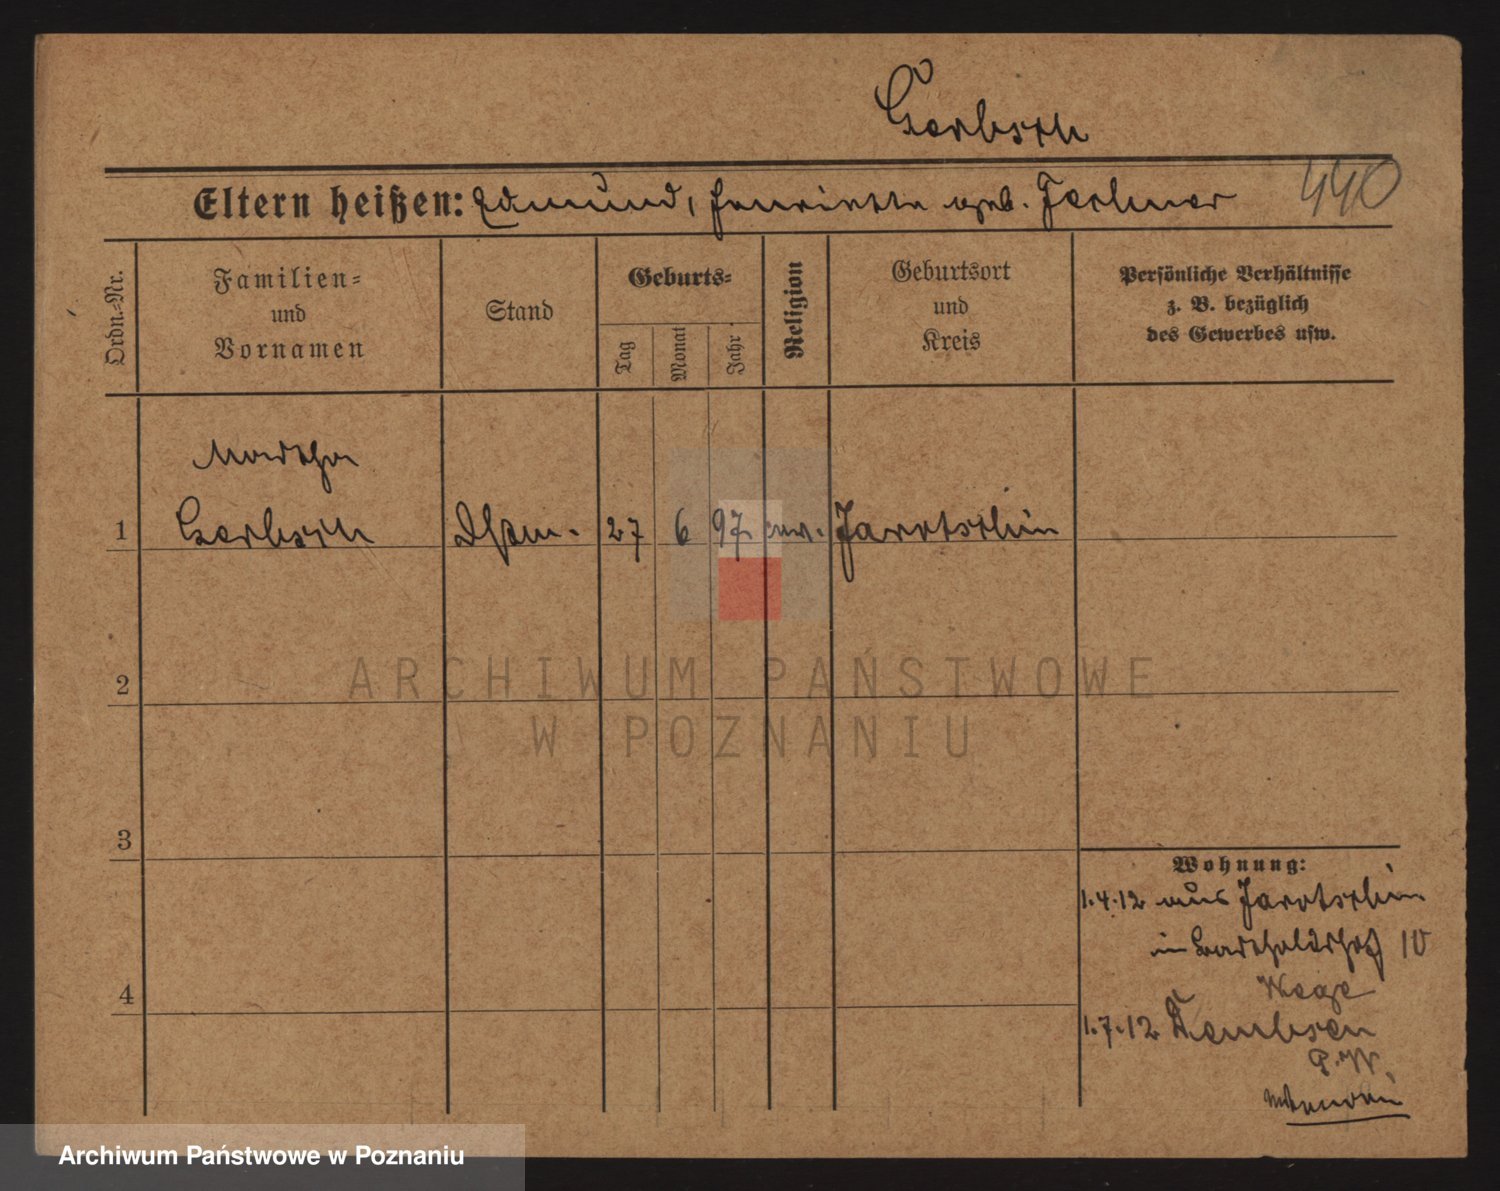 Gerbsch
Eltern heißen: Edmund, Henriette geb. Fechner 440
Ordn.=Nr.
Familien=
und
Vornamen
Stand
Geburts=
Tag
Monat
Jahr
Religion
Geburtsort
und
Kreis
Persönliche Verhältnisse
z. B. bezüglich
des Gewerbes usw.
Martha
1 Gerbsch 27 6 97 Jarotschin
2
ARCHIWUM PAŃSTWOWE
W POZNANIU
3
4
Wohnung:
1.4.12 aus Jarotschin
in Bartholdshof 10
1.7.12
Archiwum Państwowe w Poznaniu